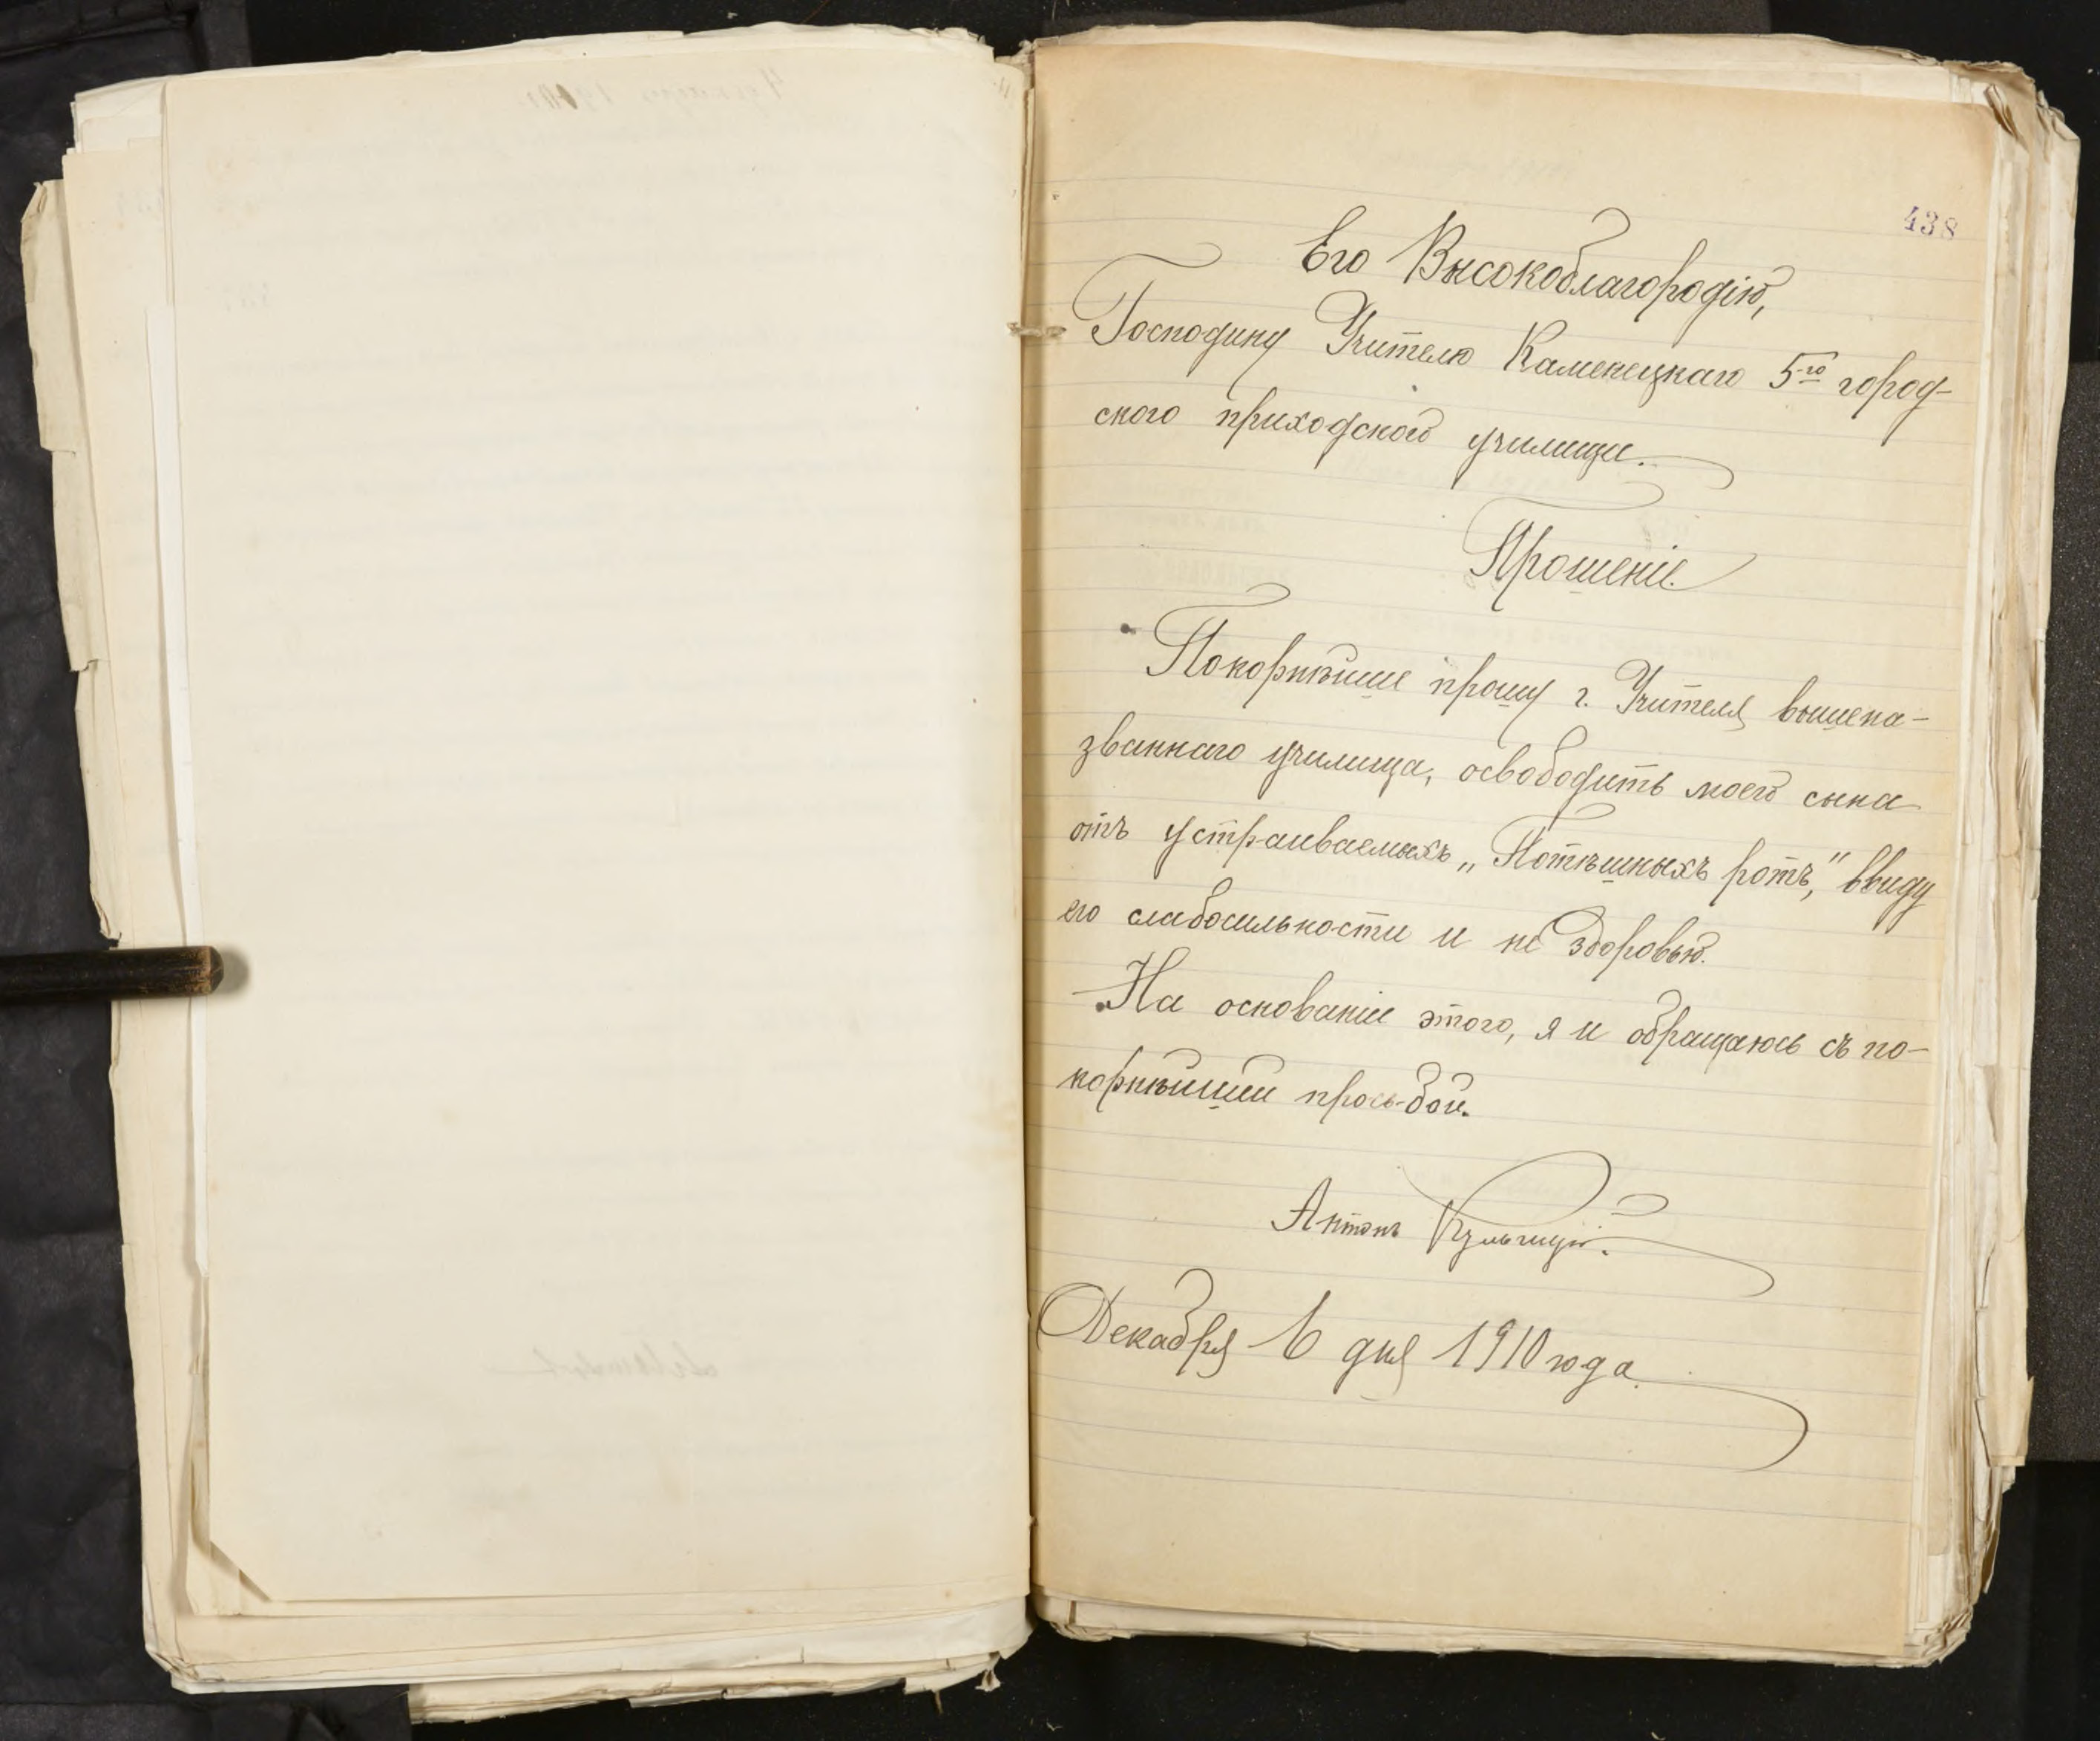 438
Его Высокоблагородію,
Господину Учителю Каменецкаго 5-го город-
ского приходского училищи.
Прошеніе.
Покорнѣише прошу г. Учителя вышена-
званнаго училища, освободить моего сына
отъ устраиваемыхъ „Потѣшныхъ ротъ," ввиду
его слабосильности и не здоровью.
На основаніи этого, я и обращаюсь съ по-
корнѣишеи прось-бой.
Антонъ Кульчицкій.
Декабря 6 дня 1910 года